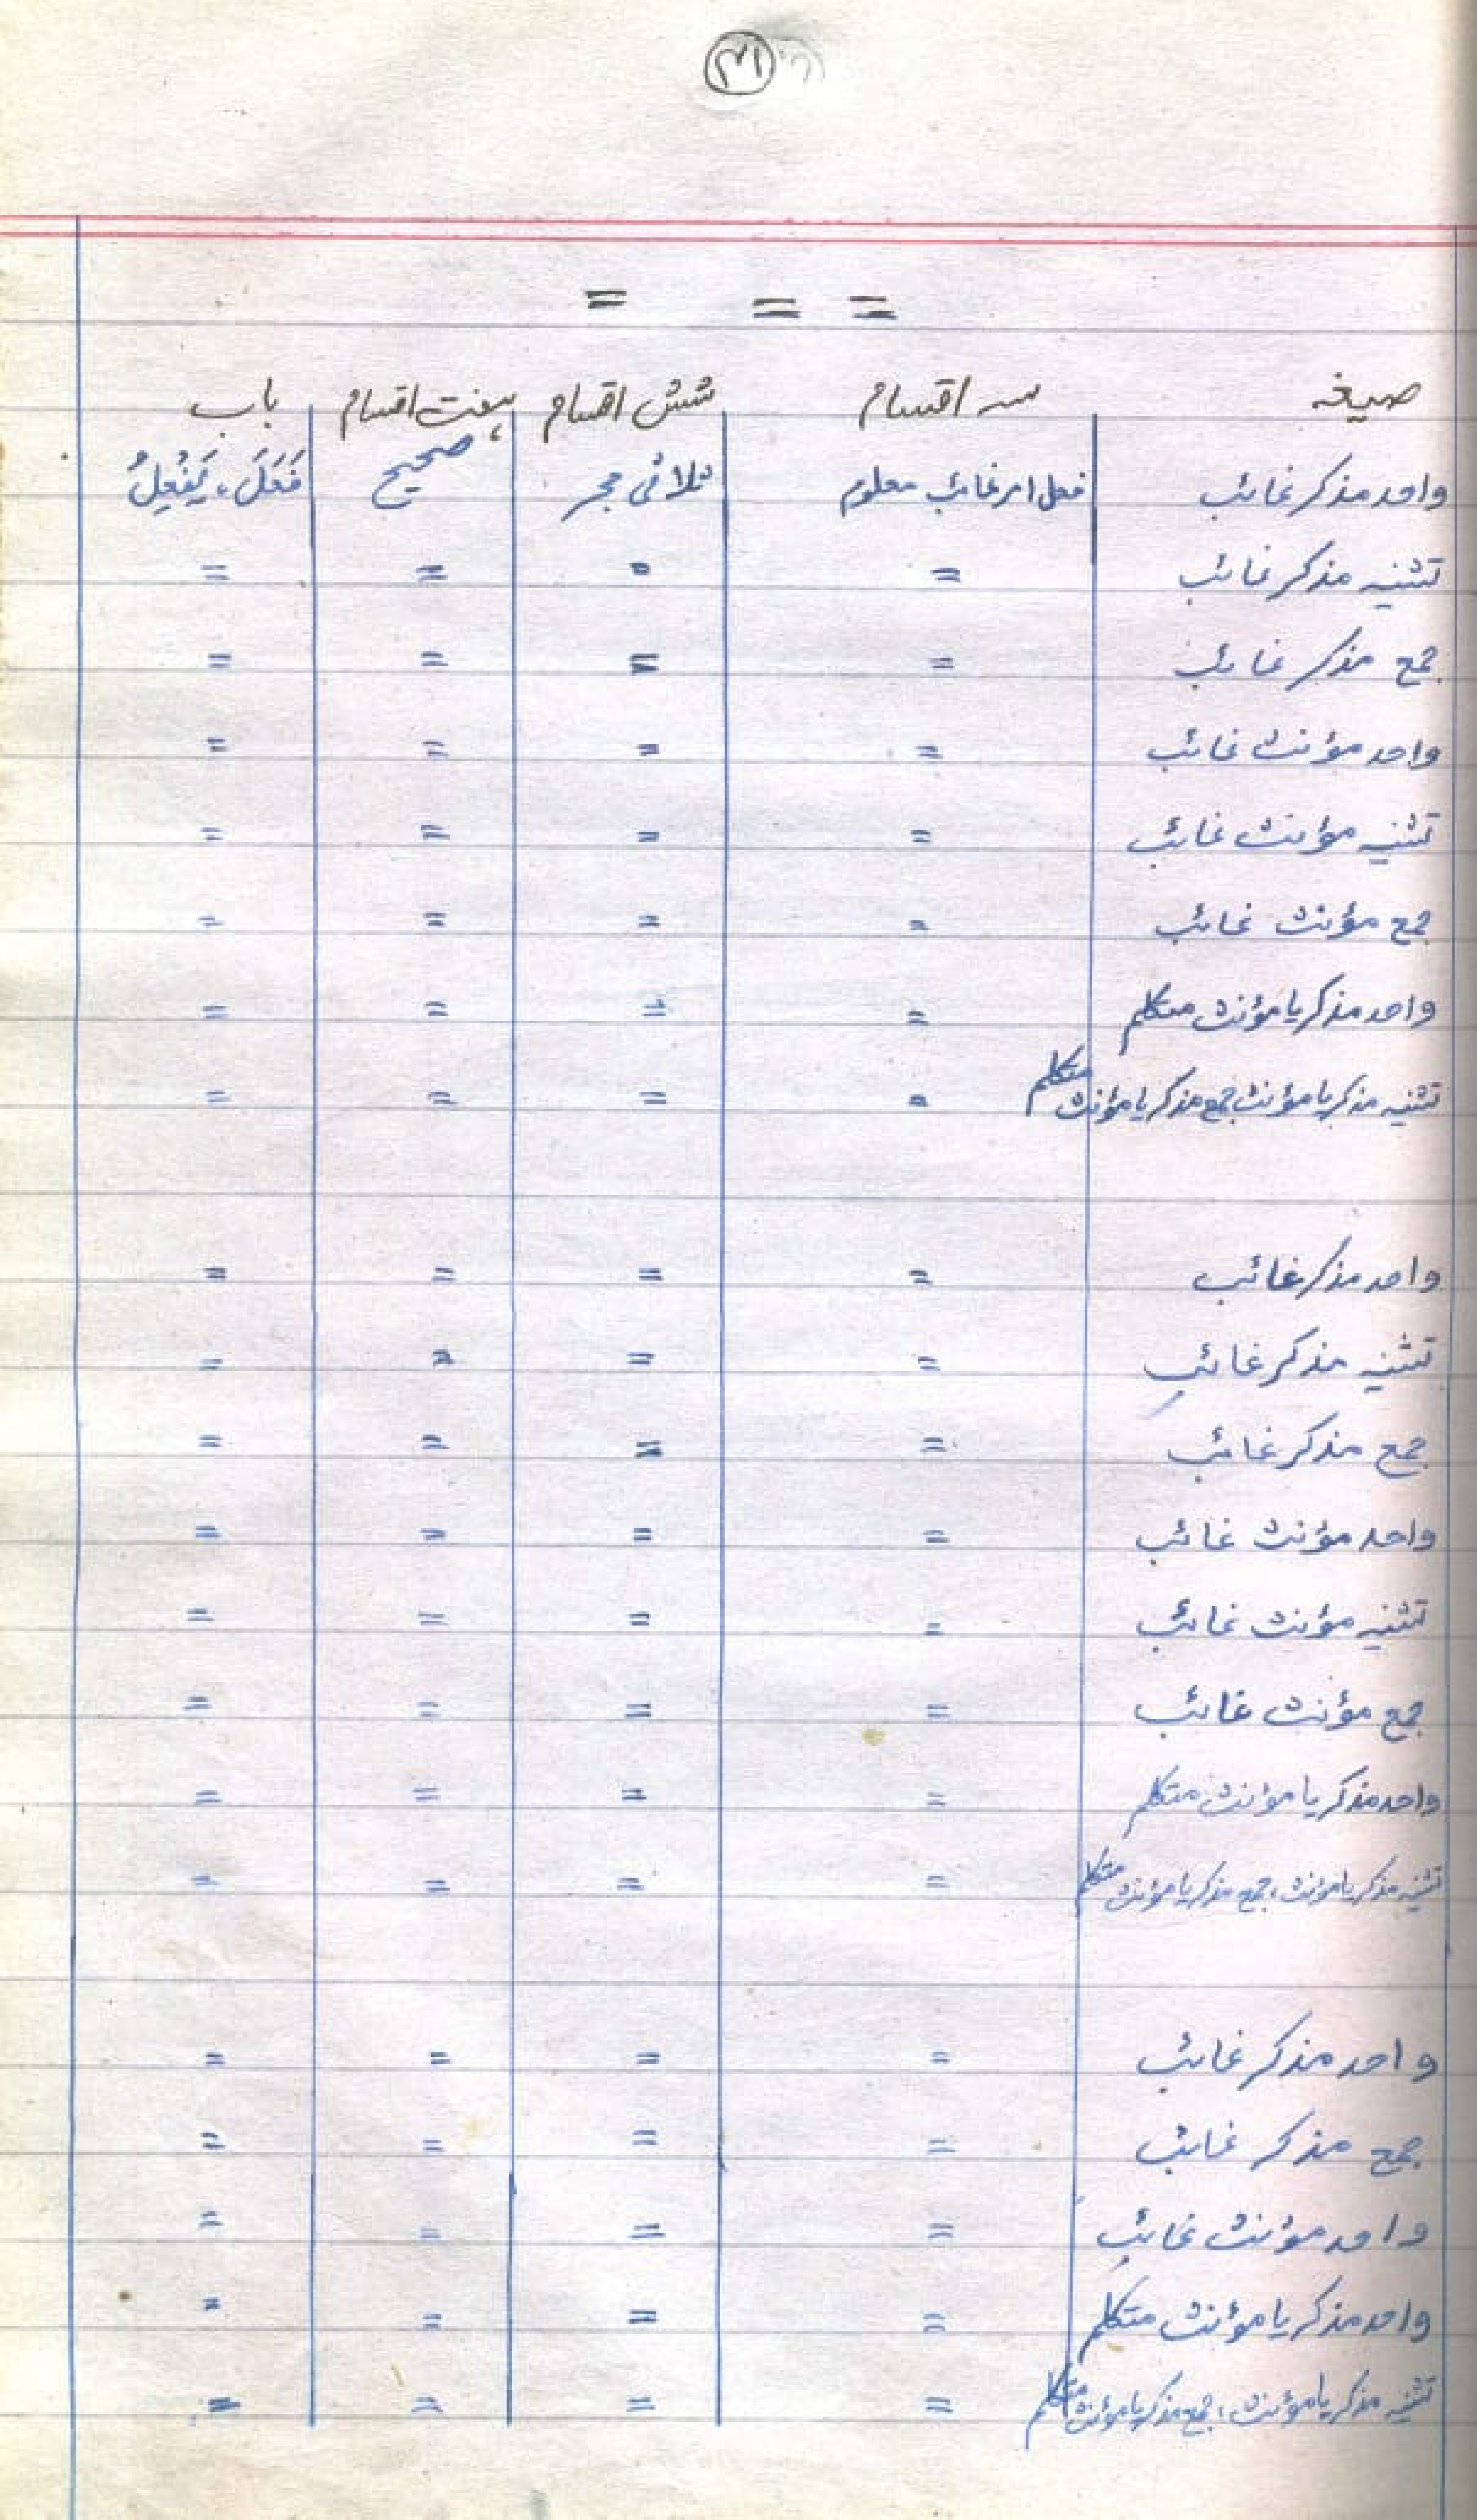 ۳۱
= = =
صیغہ سہ اقسام شش اقسام ہفت اقسام باب
واحد مذکر غائب فعل امر غائب معلوم ثلاثی مجر صحیح فَعَلَ، یَفْعِلُ
تثنیہ مذکر غائب = = = =
جمع مذکر غائب = = = =
واحد مؤنث غائب = = = =
تثنیہ مؤنث غائب = = = =
جمع مؤنث غائب = = = =
واحد مذکر یا مؤنث متکلم = = = =
تثنیہ مذکر یا مؤنث جمع مذکر یا مؤنث متکلم = = = =
واحد مذکر غائب = = = =
تثنیہ مذکر غائب = = = =
جمع مذکر غائب = = = =
واحد مؤنث غائب = = = =
تثنیہ مؤنث غائب = = = =
جمع مؤنث غائب = = = =
واحد مذکر یا مؤنث متکلم = = = =
تثنیہ مذکر یا مؤنث، جمع مذکر یا مؤنث متکلم = = = =
واحد مذکر غائب = = = =
جمع مذکر غائب = = = =
واحد مؤنث غائب = = = =
واحد مذکر یا مؤنث متکلم = = = =
تثنیہ مذکر یا مؤنث، جمع مذکر یا مؤنث متکلم = = = =